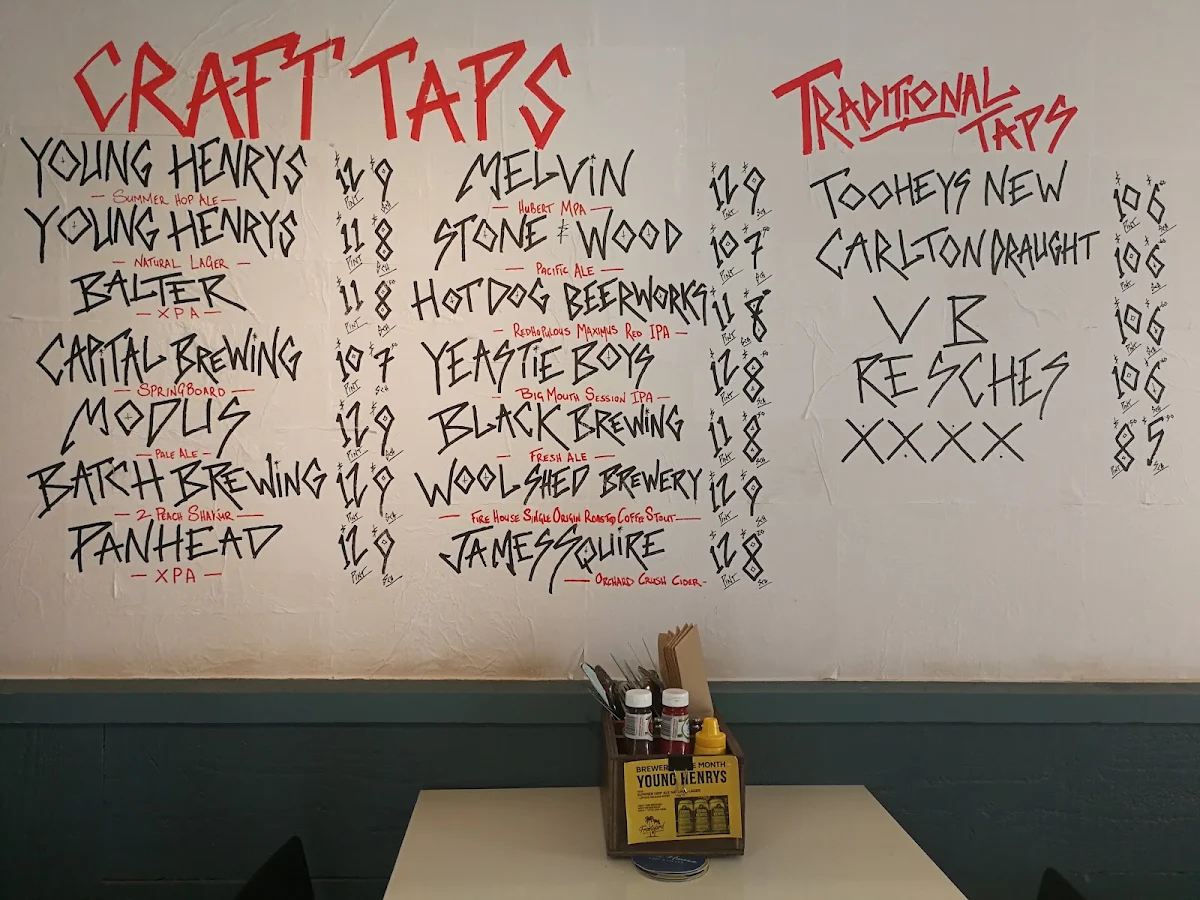 CRAFT TAPS
YOUNG HENRYS $12 $9
— SUMMER HOP ALE — PINT SCH
YOUNG HENRYS $11 $8
— NATURAL LAGER — PINT SCH
BALTER $11 $8
— XPA — PINT SCH
CAPITAL BREWING $10 $7
— SPRINGBOARD — PINT SCH
MODUS $12 $9
— PALE ALE — PINT SCH
BATCH BREWING $12 $9
— 2 PEACH SHAKUR — PINT SCH
PANHEAD $12 $9
— XPA — PINT SCH
MELVIN $12 $9
— HUBERT MPA — PINT SCH
STONE & WOOD $10 $7.50
— PACIFIC ALE — PINT SCH
HOTDOG BEERWORKS $11 $8
— REDHOPULOUS MAXIMUS RED IPA — SCH
YEASTIE BOYS $12 $8.50
— BIG MOUTH SESSION IPA — PINT SCH
BLACK BREWING $11 $8.50
— FRESH ALE — PINT SCH
WOOLSHED BREWERY $12 $9
— FIRE HOUSE SINGLE ORIGIN ROASTED COFFEE STOUT — SCH
JAMES SQUIRE $12 $8.50
— ORCHARD CRUSH CIDER — PINT SCH
TRADITIONAL
TAPS
TOOHEYS NEW $10 $6
PINT SCH
CARLTON DRAUGHT $10 $6
PINT SCH
VB $10 $6
PINT SCH
RESCHES $10 $6
PINT SCH
XXXX $8 $5.50
PINT SCH
BREWER MONTH
YOUNG HENRYS
SUMMER HOP ALE